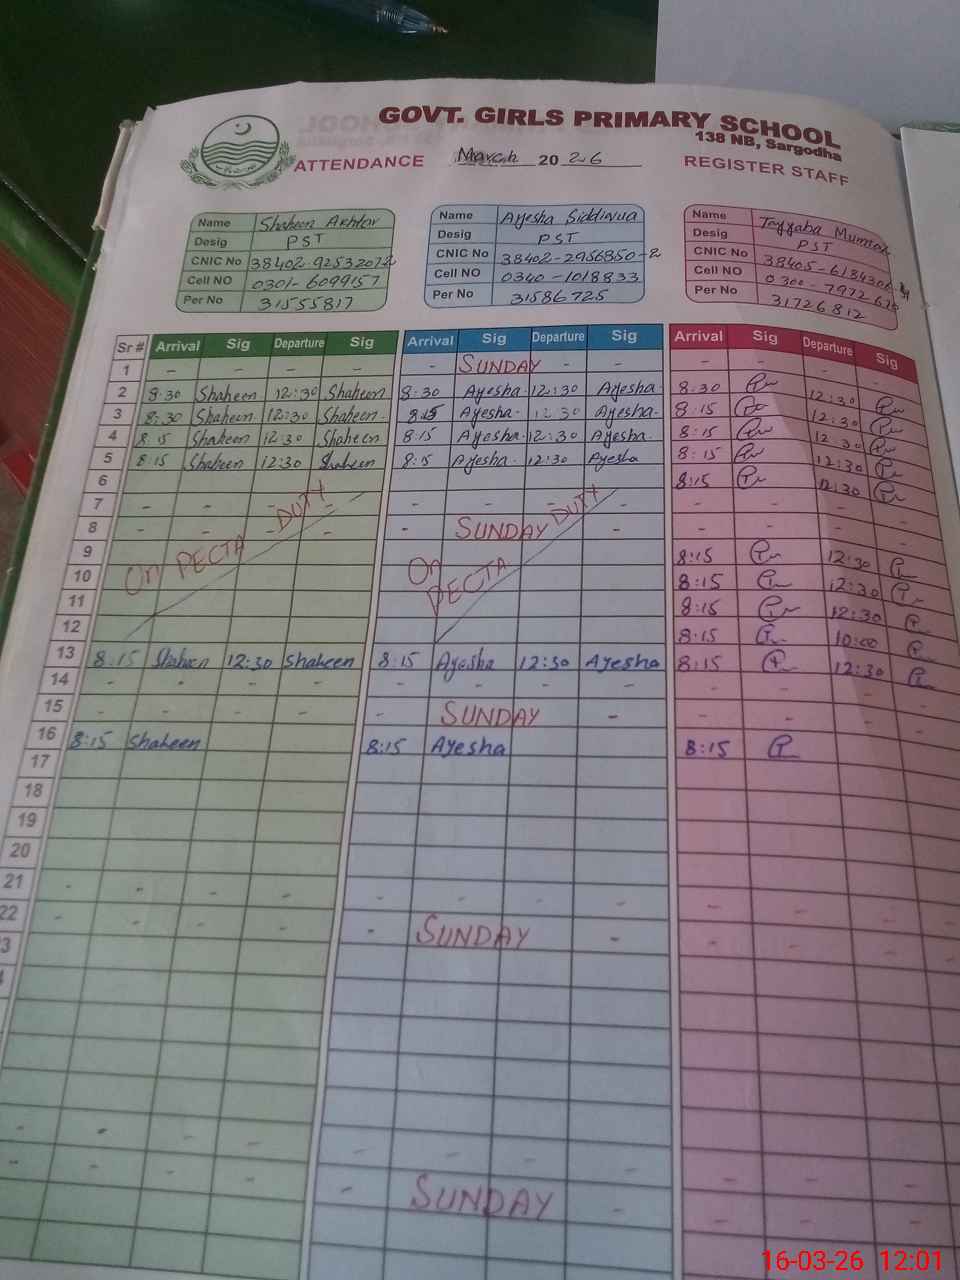 GOVT. GIRLS PRIMARY SCHOOL
138 NB, Sargodha
ATTENDANCE March 2026 REGISTER STAFF
Name Shaheen Akhtar
Desig PST
CNIC No
Cell NO 0301-6099157
Per No 31555817
Name Ayesha Siddiqua
Desig PST
CNIC No 38402-2956850-2
Cell NO 0340-1018833
Per No 31586725
Name Tayyaba Mumtaz
Desig PST
CNIC No
Cell NO
Per No 31726812
Sr # Arrival Sig Departure Sig Arrival Sig Departure Sig Arrival Sig Departure Sig
1 - - - - - SUNDAY - - - - - -
2 8:30 Shaheen 12:30 Shaheen 8:30 Ayesha 12:30 Ayesha 8:30 12:30
3 8:30 Shaheen 12:30 Shaheen 8:15 Ayesha 12:30 Ayesha 8:15 12:30
4 8:15 Shaheen 12:30 Shaheen 8:15 Ayesha 12:30 Ayesha 8:15 12:30
5 8:15 Shaheen 12:30 Shaheen 8:15 Ayesha 12:30 Ayesha 8:15 12:30
6 8:15 12:30
7 - - - - - - - - - - - -
8 - - - - - SUNDAY - - - - -
On PECTA DUTY
On PECTA DUTY
9 8:15 12:30
10 8:15 12:30
11 8:15 12:30
12 8:15 10:00
13 8:15 Shaheen 12:30 Shaheen 8:15 Ayesha 12:30 Ayesha 8:15 12:30
14 - - - - - - - - - - - -
15 - - - - - SUNDAY - - - - -
16 8:15 Shaheen 8:15 Ayesha 8:15
17
18
19
20
21 - - - - - - - - - - - -
22 - - - - - SUNDAY - - - - -
3
- - - - - - - - - - - -
- - - - - SUNDAY - - - -
16-03-26 12:01